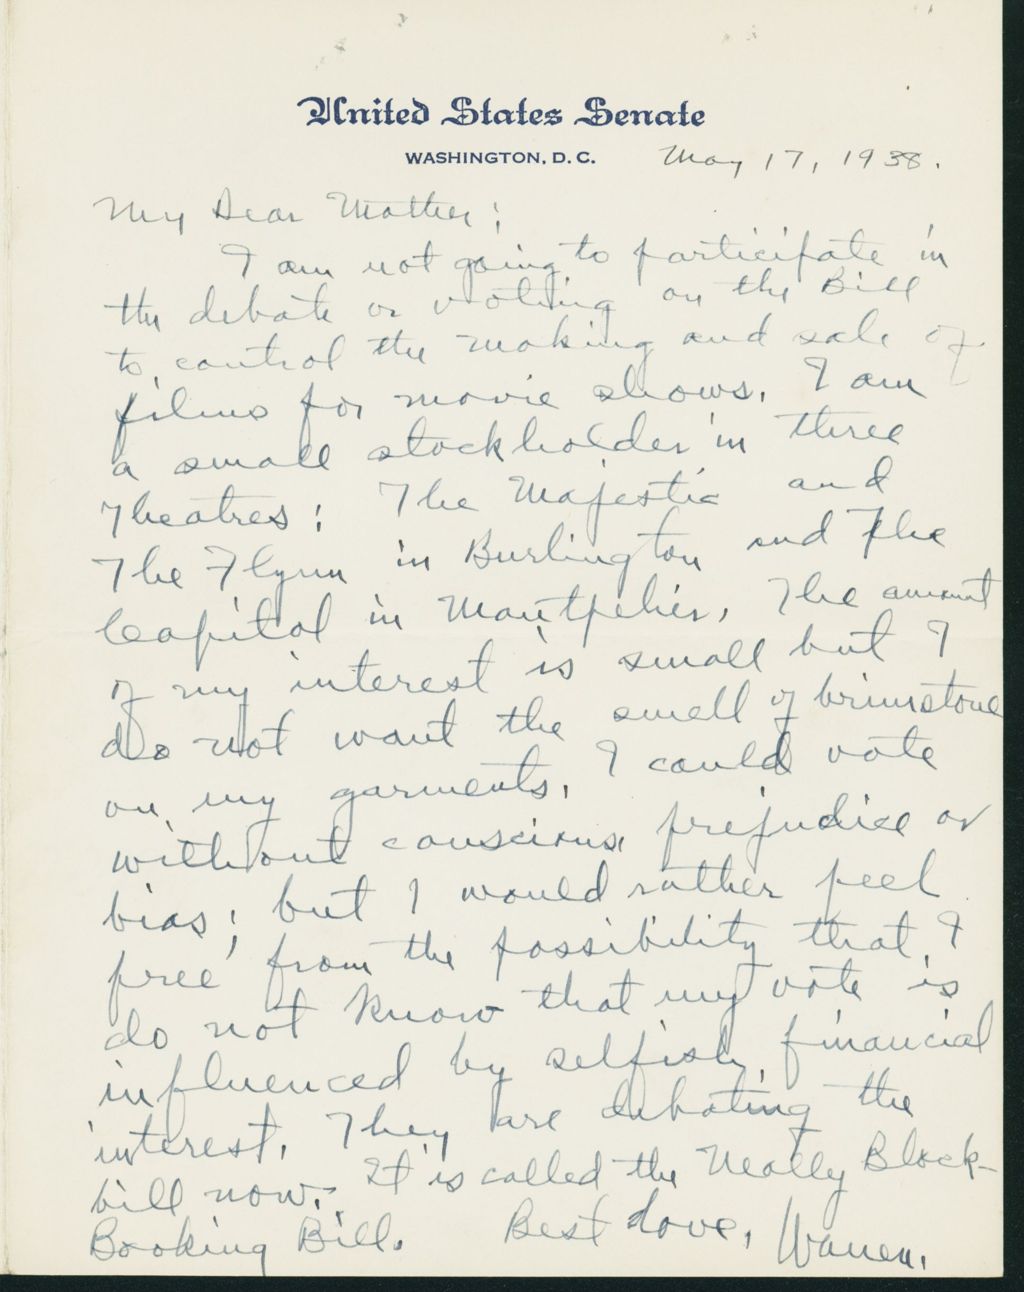 United States Senate
WASHINGTON, D. C.
May 17, 1938.
My Dear Mother;
I am not going to participate in
the debate or voting on the Bill
to control the making and sale of
films for movie shows. I am
a small stockholder in three
Theatres: The Majestic and
The Flynn in Burlington and The
Capitol in Montpelier. The amount
of my interest is small but I
do not want the smell of brimstone
on my garments. I could vote
without conscious prejudice or
bias; but I would rather feel
free from the possibility that I
do not know that my vote is
influenced by selfish financial
interest. They are debating the
bill now. It is called the Neally Block-
Booking Bill. Best love, Warren.